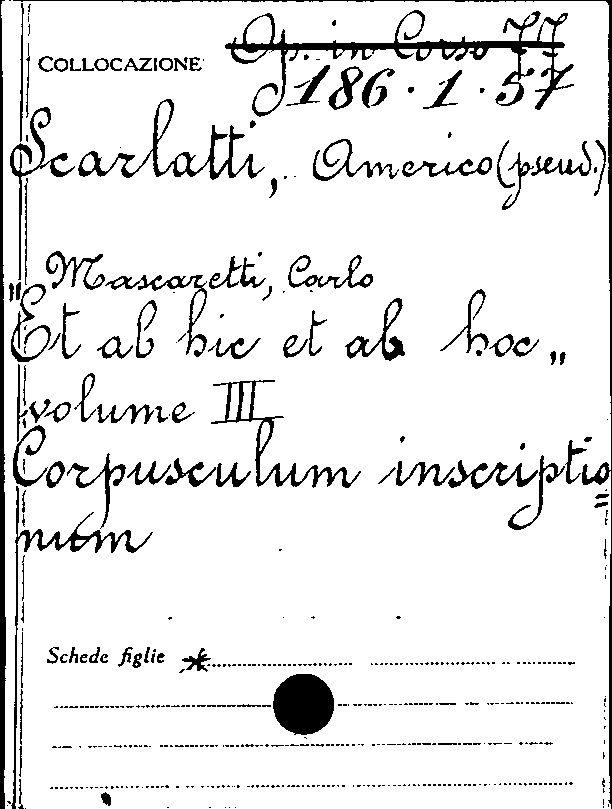 Op. in Corso 77
COLLOCAZIONE
186·1·57
Scarlatti, Americo (pseud.)
Mascaretti, Carlo
"Et ab hic et ab hoc"
volume III
Corpusculum inscriptio=
num
Schede figlie *